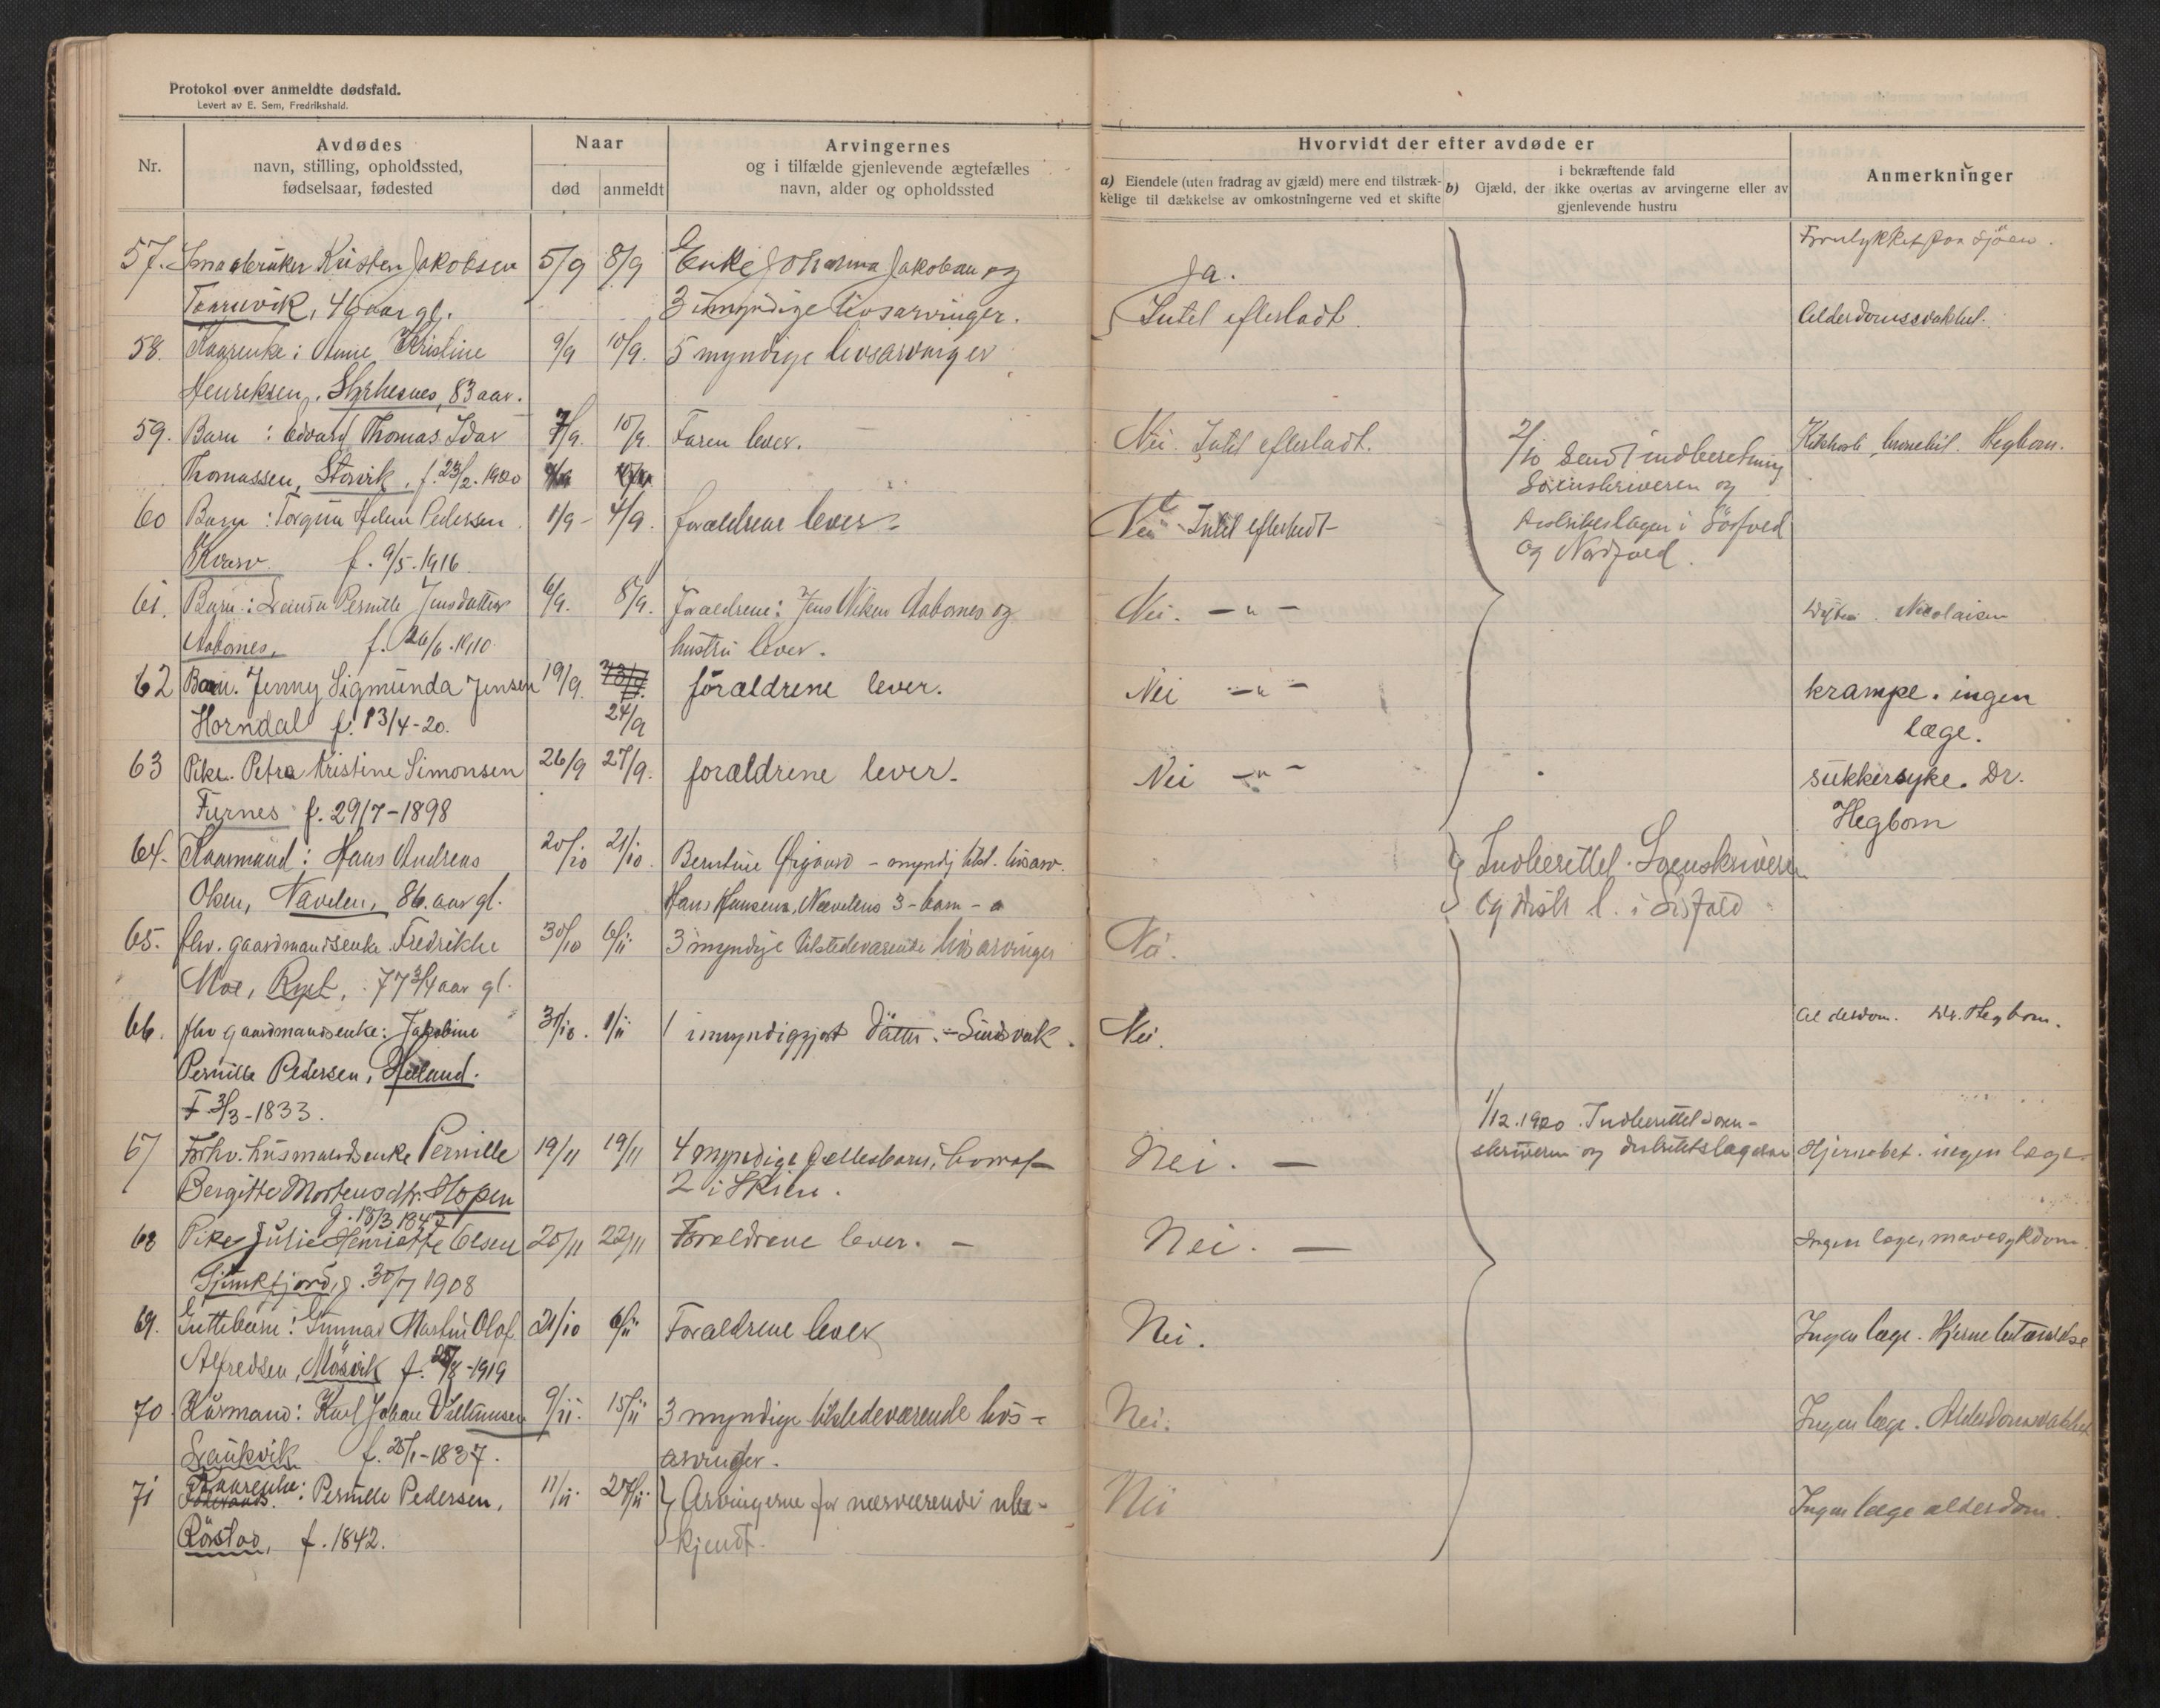 Protokol over anmeldte dødsfald.
Levert av E. Sem, Fredrikshald.
Nr.
Avdødes
navn, stilling, opholdssted,
fødselsaar, fødested
Naar
død
anmeldt
Arvingernes
og i tilfælde gjenlevende ægtefælles
navn, alder og opholdssted
Hvorvidt der efter avdøde er
a) Eiendele (uten fradrag av gjæld) mere end tilstræk-
kelige til dækkelse av omkostningerne ved et skifte
b)
i bekræftende fald
Gjæld, der ikke overtas av arvingerne eller av
gjenlevende hustru
Anmerkninger
57. Smaabruker Kristen Jakobsen 5/9 8/9 Enke Johanna Jakobsen og Ja. Forulykket paa Sjöen.
46 aar gl. 3 umyndige livsarvinger. Intet efterladt. Alderdomssvakhet.
58. Kaarenke: Anne Kristine 9/9 10/9. 5 myndige livsarvinger
Henriksen, 83 aar.
59. Barn: Edvard Thomas Idar 7/9. 10/9. Faren lever. Nei. Intet efterladt. 2/10 Sendt indberetning Hegbom.
Thomassen, Storvik, f. 23/2. 1920 Sorenskriveren og
60 Barn: Helene Pedersen 1/9 - 4/9. forældrene lever. Nei Intet efterladt Distriktslægen i Sörfold
Kvarv f. 9/5. 1916. og Nordfold.
61. Barn: Pernille Jensdatter 6/9. 8/9. Forældrene: Jens Aabornes og Nei. — " — Nicolaisen
Aabornes, f. 26/6. 1910. hustru lever.
62 Barn. Jenny Sigmunda Jensen 19/9. forældrene lever. Nei — " — krampe. ingen
Horndal f. 13/4-20. 24/9 læge.
63 Pike. Petra Kristine Simonsen 26/9 27/9. forældrene lever. Nei — " — sukkersyke. Dr.
Furnes f. 29/7-1898 Hegbom
64. Kaarmand: Hans Andreas 20/10 21/10. Berntine - myndig Indberettet Sorenskriveren
Olsen, Nævelen, 86. aar gl. Hans Hansens, Nævelens 3 - barn - og i
65. fhv. gaardmandsenke Fredrikke 30/10 6/11 3 myndige tilstedeværende livsarvinger Nei.
Moe, 77 3/4 aar gl.
66. fhv gaardmandsenke: Jakobine 31/10. 1/11 1 umyndiggjort datter. - Sindsvak. Nei. Alderdom. Dr. Hegbom.
Pernille Pedersen,
F 3/3-1833. 1/12. 1920. Indberettet Soren-
67 Forhv. husmandsenke Pernille 19/11 19/11 4 myndige fællesbarn, Nei. — skriveren og distriktslægen ingen læge.
Bergitte Mortensdtr. Hopen 2 i Skien.
g. 18/3 1847
68 Pike Julie Henriette Olsen 20/11 22/11 Forældrene lever. — Nei. — Ingen læge, mavesykdom.
30/7 1908
69. Guttebarn: Gunnar Martin Olaf 21/10 6/11 Forældrene lever Nei. Ingen læge. Hjernebetændelse
Alfredsen, Mösvik f. /8-1919
70. Kaarmand: Karl Johan 9/11. 15/11 3 myndige tilstedeværende livs- Nei. Ingen læge. Alderdomssvakhet
Laukvik f. 25/1-1837. arvinger.
71 Kaarenke: Pernille Pedersen, 11/11 27/11 Arvingerne for nærværende ube- Nei Ingen læge alderdom.
Röstad, f. 1842. kjendt.